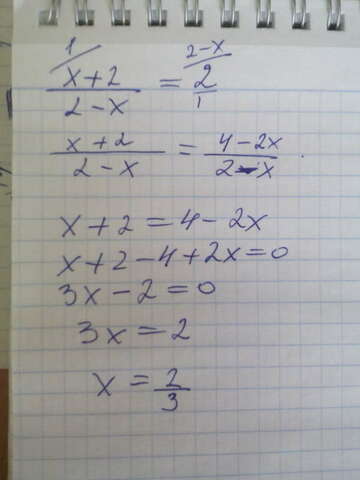 1/ (x+2)/(2-x) = 2-x/ 2/1
(x+2)/(2-x) = (4-2x)/(2-x).
x+2=4-2x
x+2-4+2x=0
3x-2=0
3x=2
x=2/3